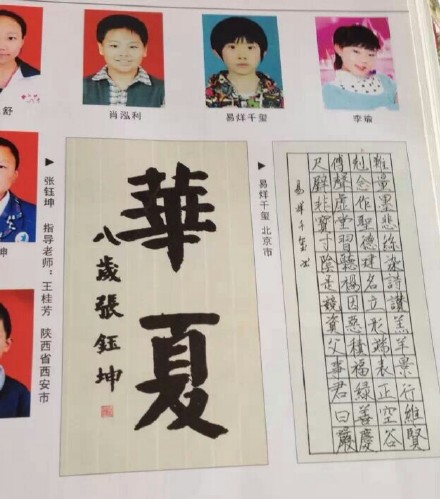 舒
肖泓利
易烊千玺
李瑜
坤
张钰坤 指导老师：王桂芳 陕西省西安市
華夏
八歲張鈺坤
易烊千玺 北京市
難量墨悲絲染詩讚羔羊景行維賢
剋念作聖德建名立形端表正空谷
傳聲虛堂習聽禍因惡積福緣善慶
尺璧非寶寸陰是競資父事君曰嚴
易烊千玺书